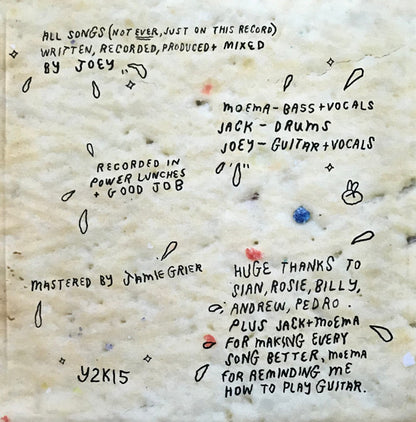 ALL SONGS (NOT EVER, JUST ON THIS RECORD)
WRITTEN, RECORDED, PRODUCED + MIXED
BY JOEY
MOEMA - BASS + VOCALS
JACK - DRUMS
JOEY - GUITAR + VOCALS
RECORDED IN
POWER LUNCHES
+ GOOD JOB
MASTERED BY JAMIE GRIER
HUGE THANKS TO
SIAN, ROSIE, BILLY,
ANDREW, PEDRO.
PLUS JACK + MOEMA
FOR MAKING EVERY
SONG BETTER, MOEMA
FOR REMINDING ME
HOW TO PLAY GUITAR.
Y2K15